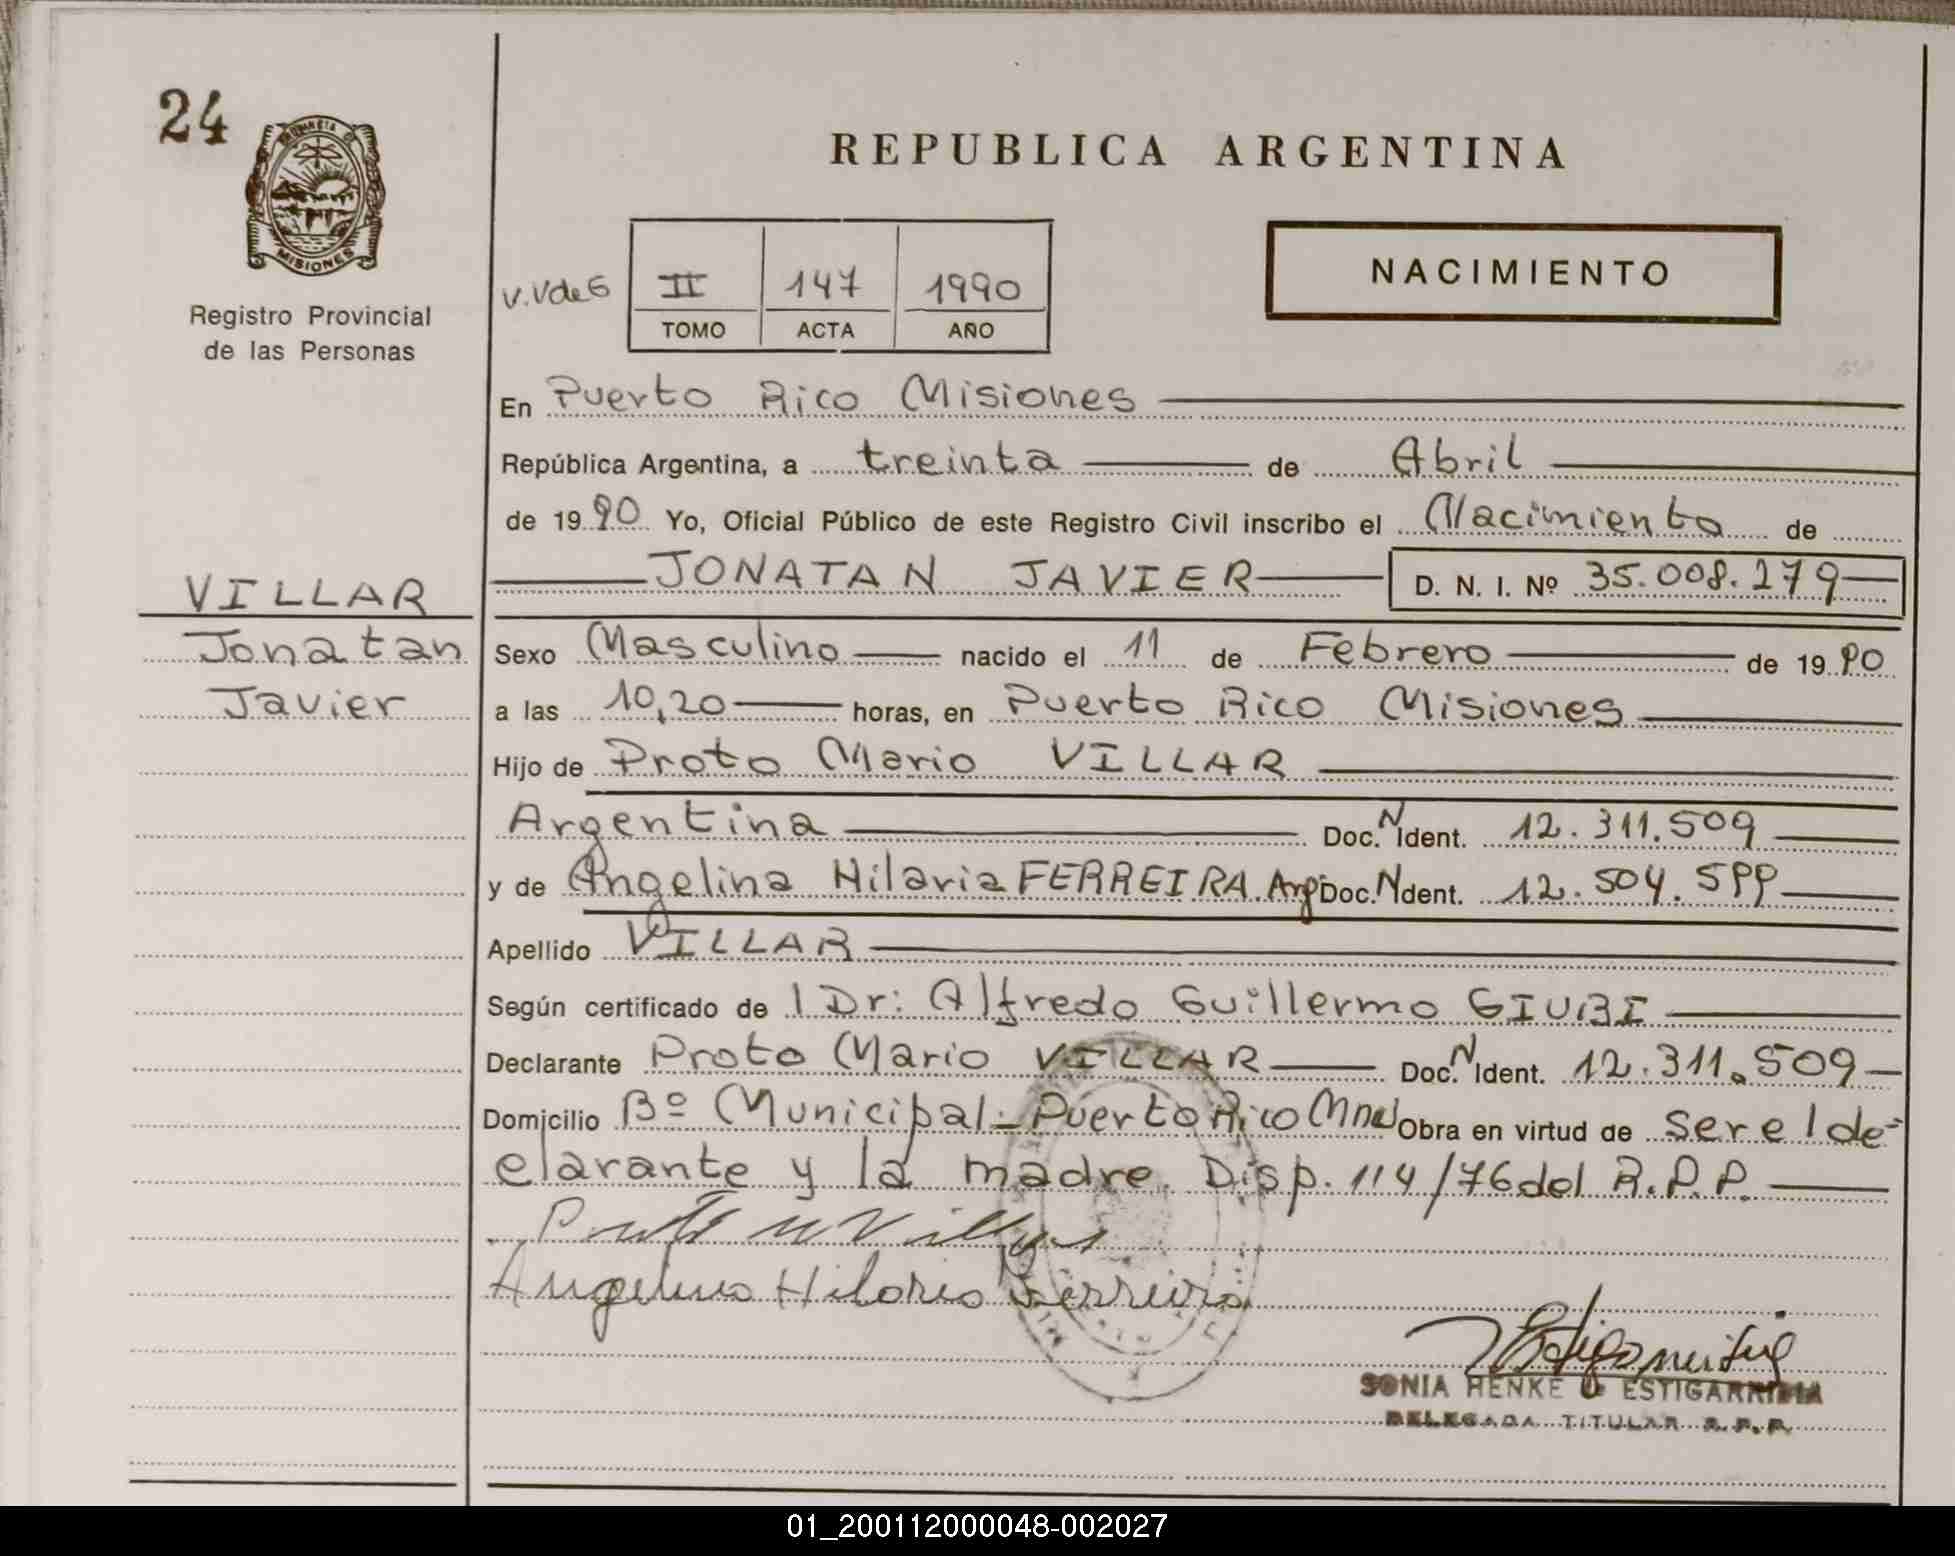 24
PROVINCIA DE
MISIONES
Registro Provincial
de las Personas
REPUBLICA ARGENTINA
V.Vde G
II 147 1990
TOMO ACTA AÑO
NACIMIENTO
En Puerto Rico Misiones
República Argentina, a treinta de Abril
de 1990 Yo, Oficial Público de este Registro Civil inscribo el Nacimiento de
JONATAN JAVIER D. N. I. Nº 35.008.279
VILLAR
Jonatan
Javier
Sexo Masculino nacido el 11 de Febrero de 1990
a las 10,20 horas, en Puerto Rico Misiones
Hijo de Proto Mario VILLAR
Argentina Doc. N Ident. 12.311.509
y de Angelina Hilaria FERREIRA. Arg. Doc. N Ident. 12.504.599
Apellido VILLAR
Según certificado de l Dr: Alfredo Guillermo GIUBI
Declarante Proto Mario VILLAR Doc. N Ident. 12.311.509
Domicilio Bº Municipal - Puerto Rico Mnes Obra en virtud de ser el de=
clarante y la madre. Disp. 114/76 del R.P.P.
Angelina Hilaria Ferreira
SONIA HENKE D ESTIGARRIBIA
DELEGADA TITULAR R.P.P.
01_200112000048-002027